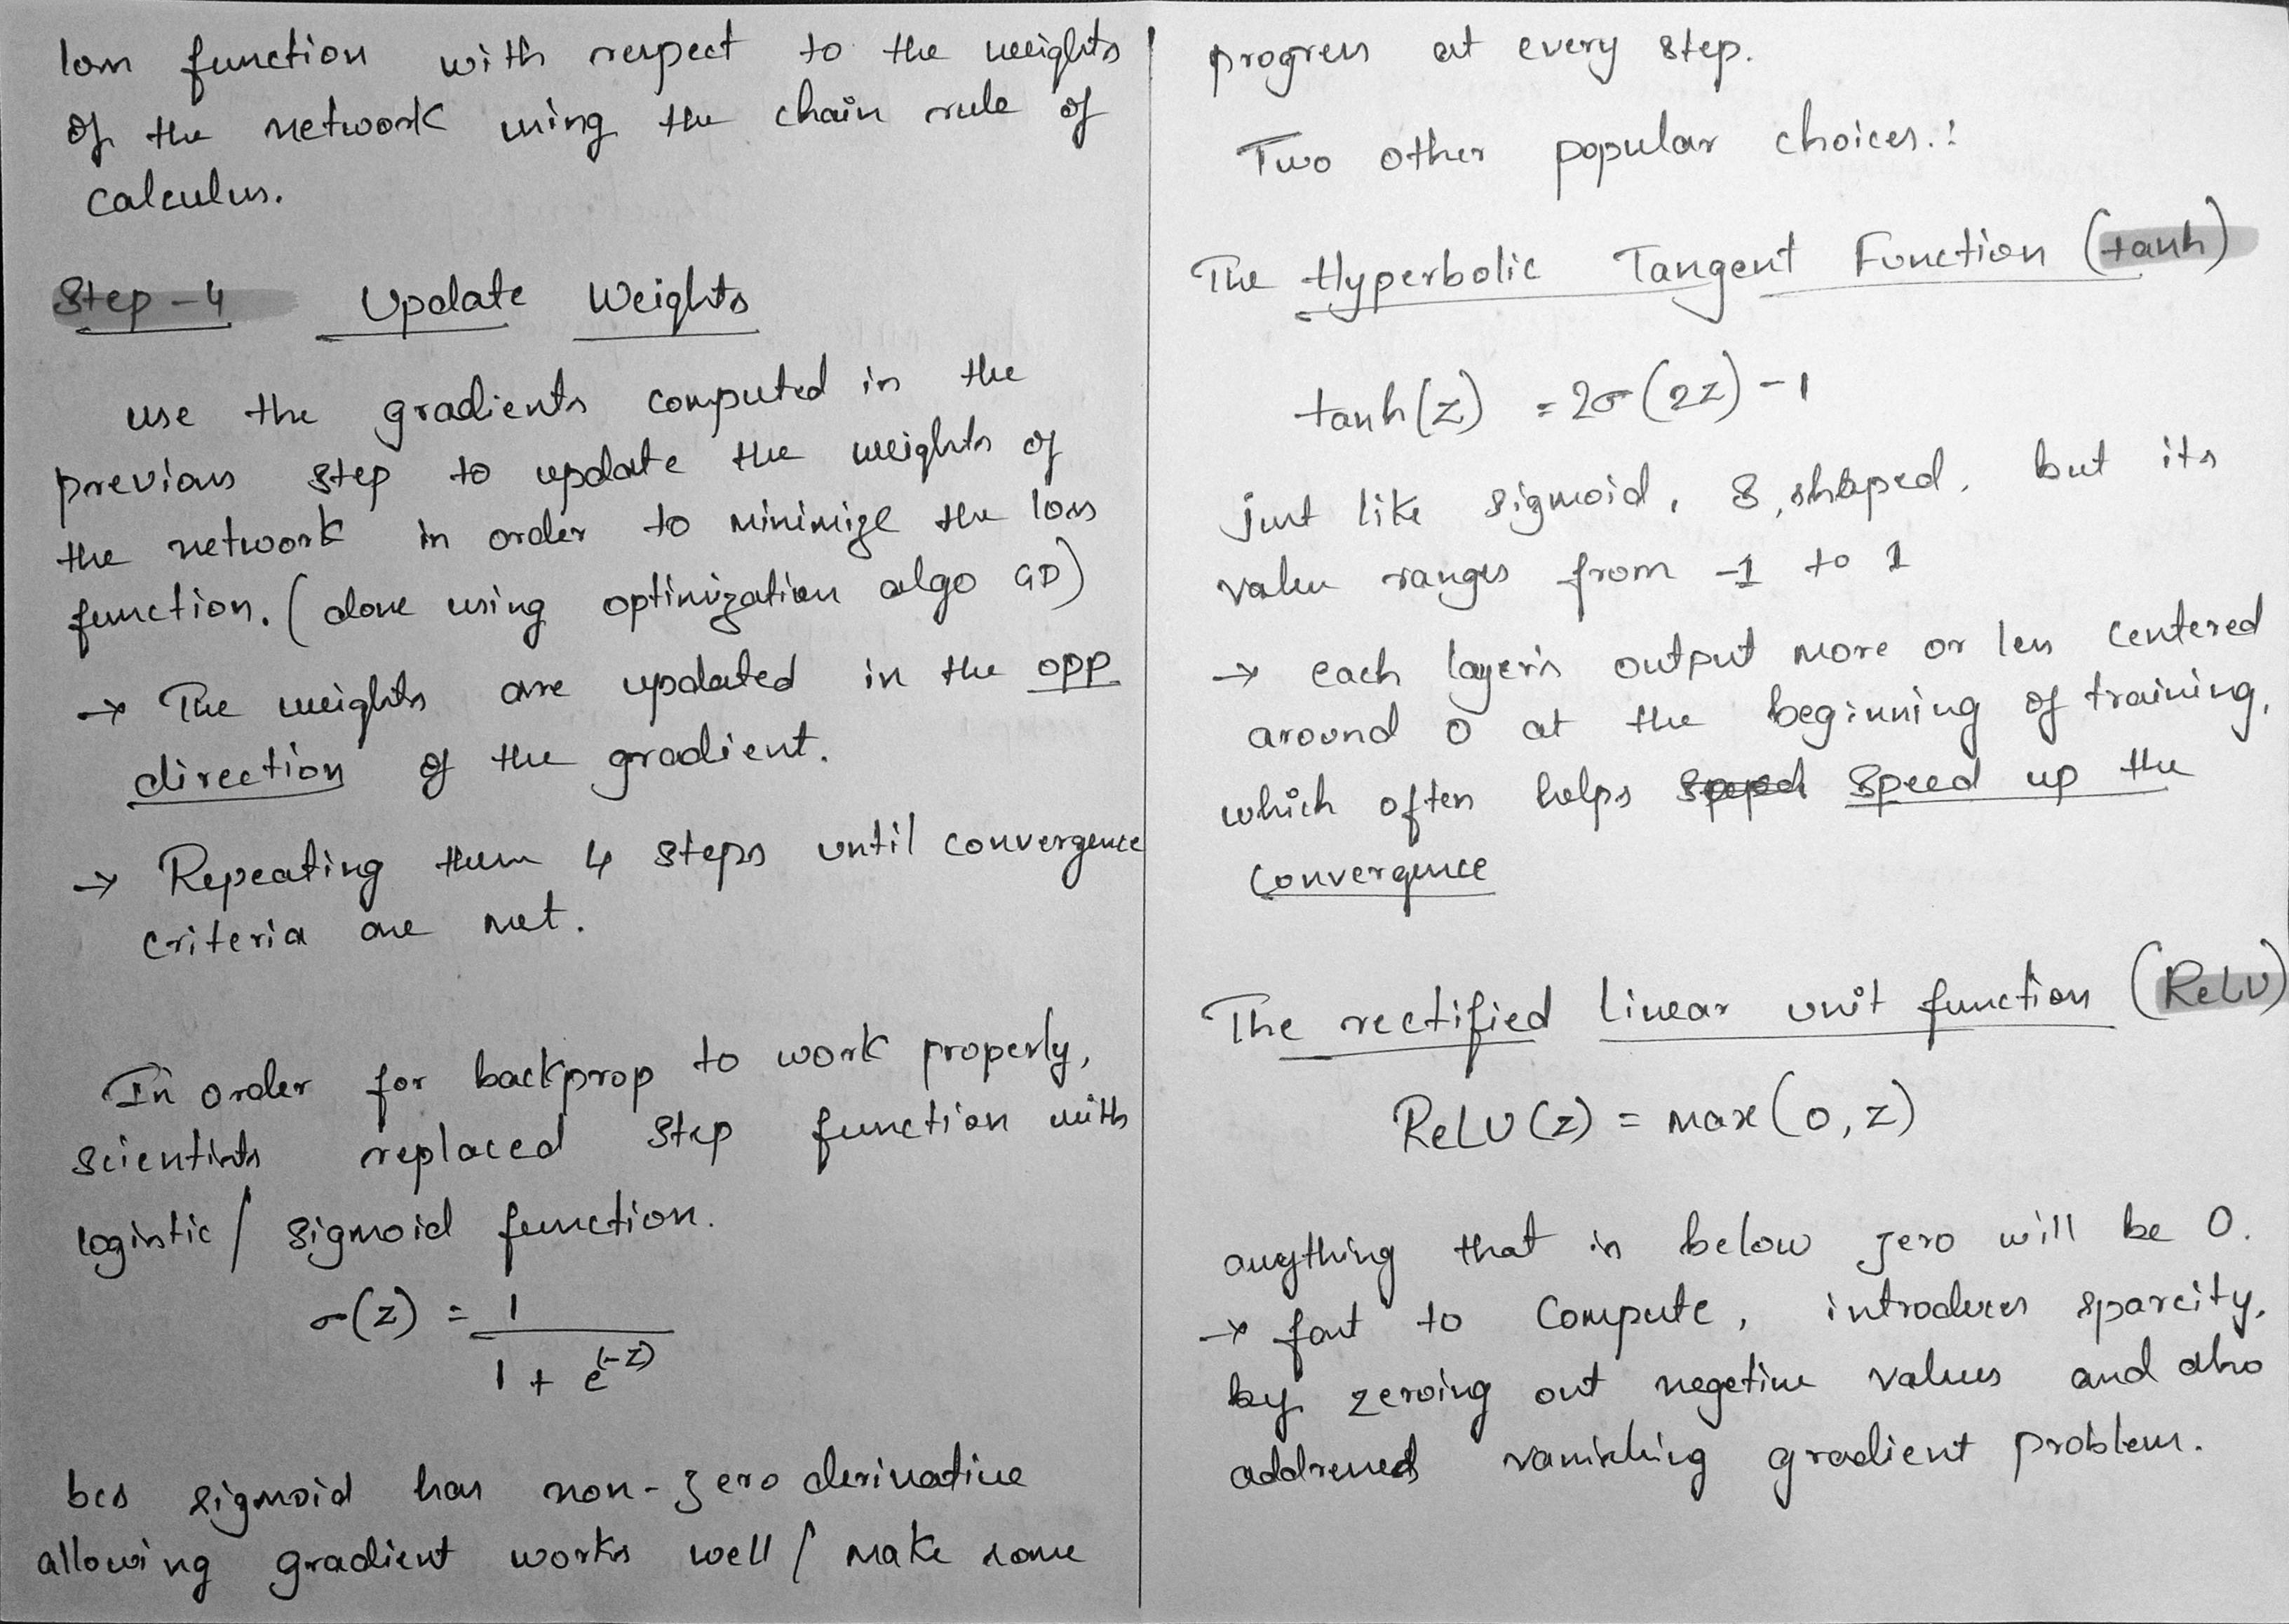 loss function with respect to the weights
of the network using the chain rule of
calculus.
Step-4 Update Weights
use the gradients computed in the
previous step to update the weights of
the network in order to minimize the loss
function. (done using optimization algo GD)
→ The weights are updated in the opp
direction of the gradient.
→ Repeating them 4 steps until convergence
criteria are met.
In order for backprop to work properly,
scientists replaced step function with
logistic/ sigmoid function.
σ(z) = 1
1 + e^(-z)
bcs sigmoid has non-zero derivative
allowing gradient works well / make some
progress at every step.
Two other popular choices.:
The Hyperbolic Tangent Function (tanh)
tanh(z) = 2σ(2z) - 1
just like sigmoid, S, shaped, but its
value ranges from -1 to 1
→ each layer's output more or less centered
around 0 at the beginning of training,
which often helps speed up the
convergence
The rectified linear unit function (ReLU)
ReLU(z) = max(0, z)
anything that is below zero will be 0.
→ fast to compute, introduces sparcity,
by zeroing out negetive values and also
addresses vanishing gradient problem.